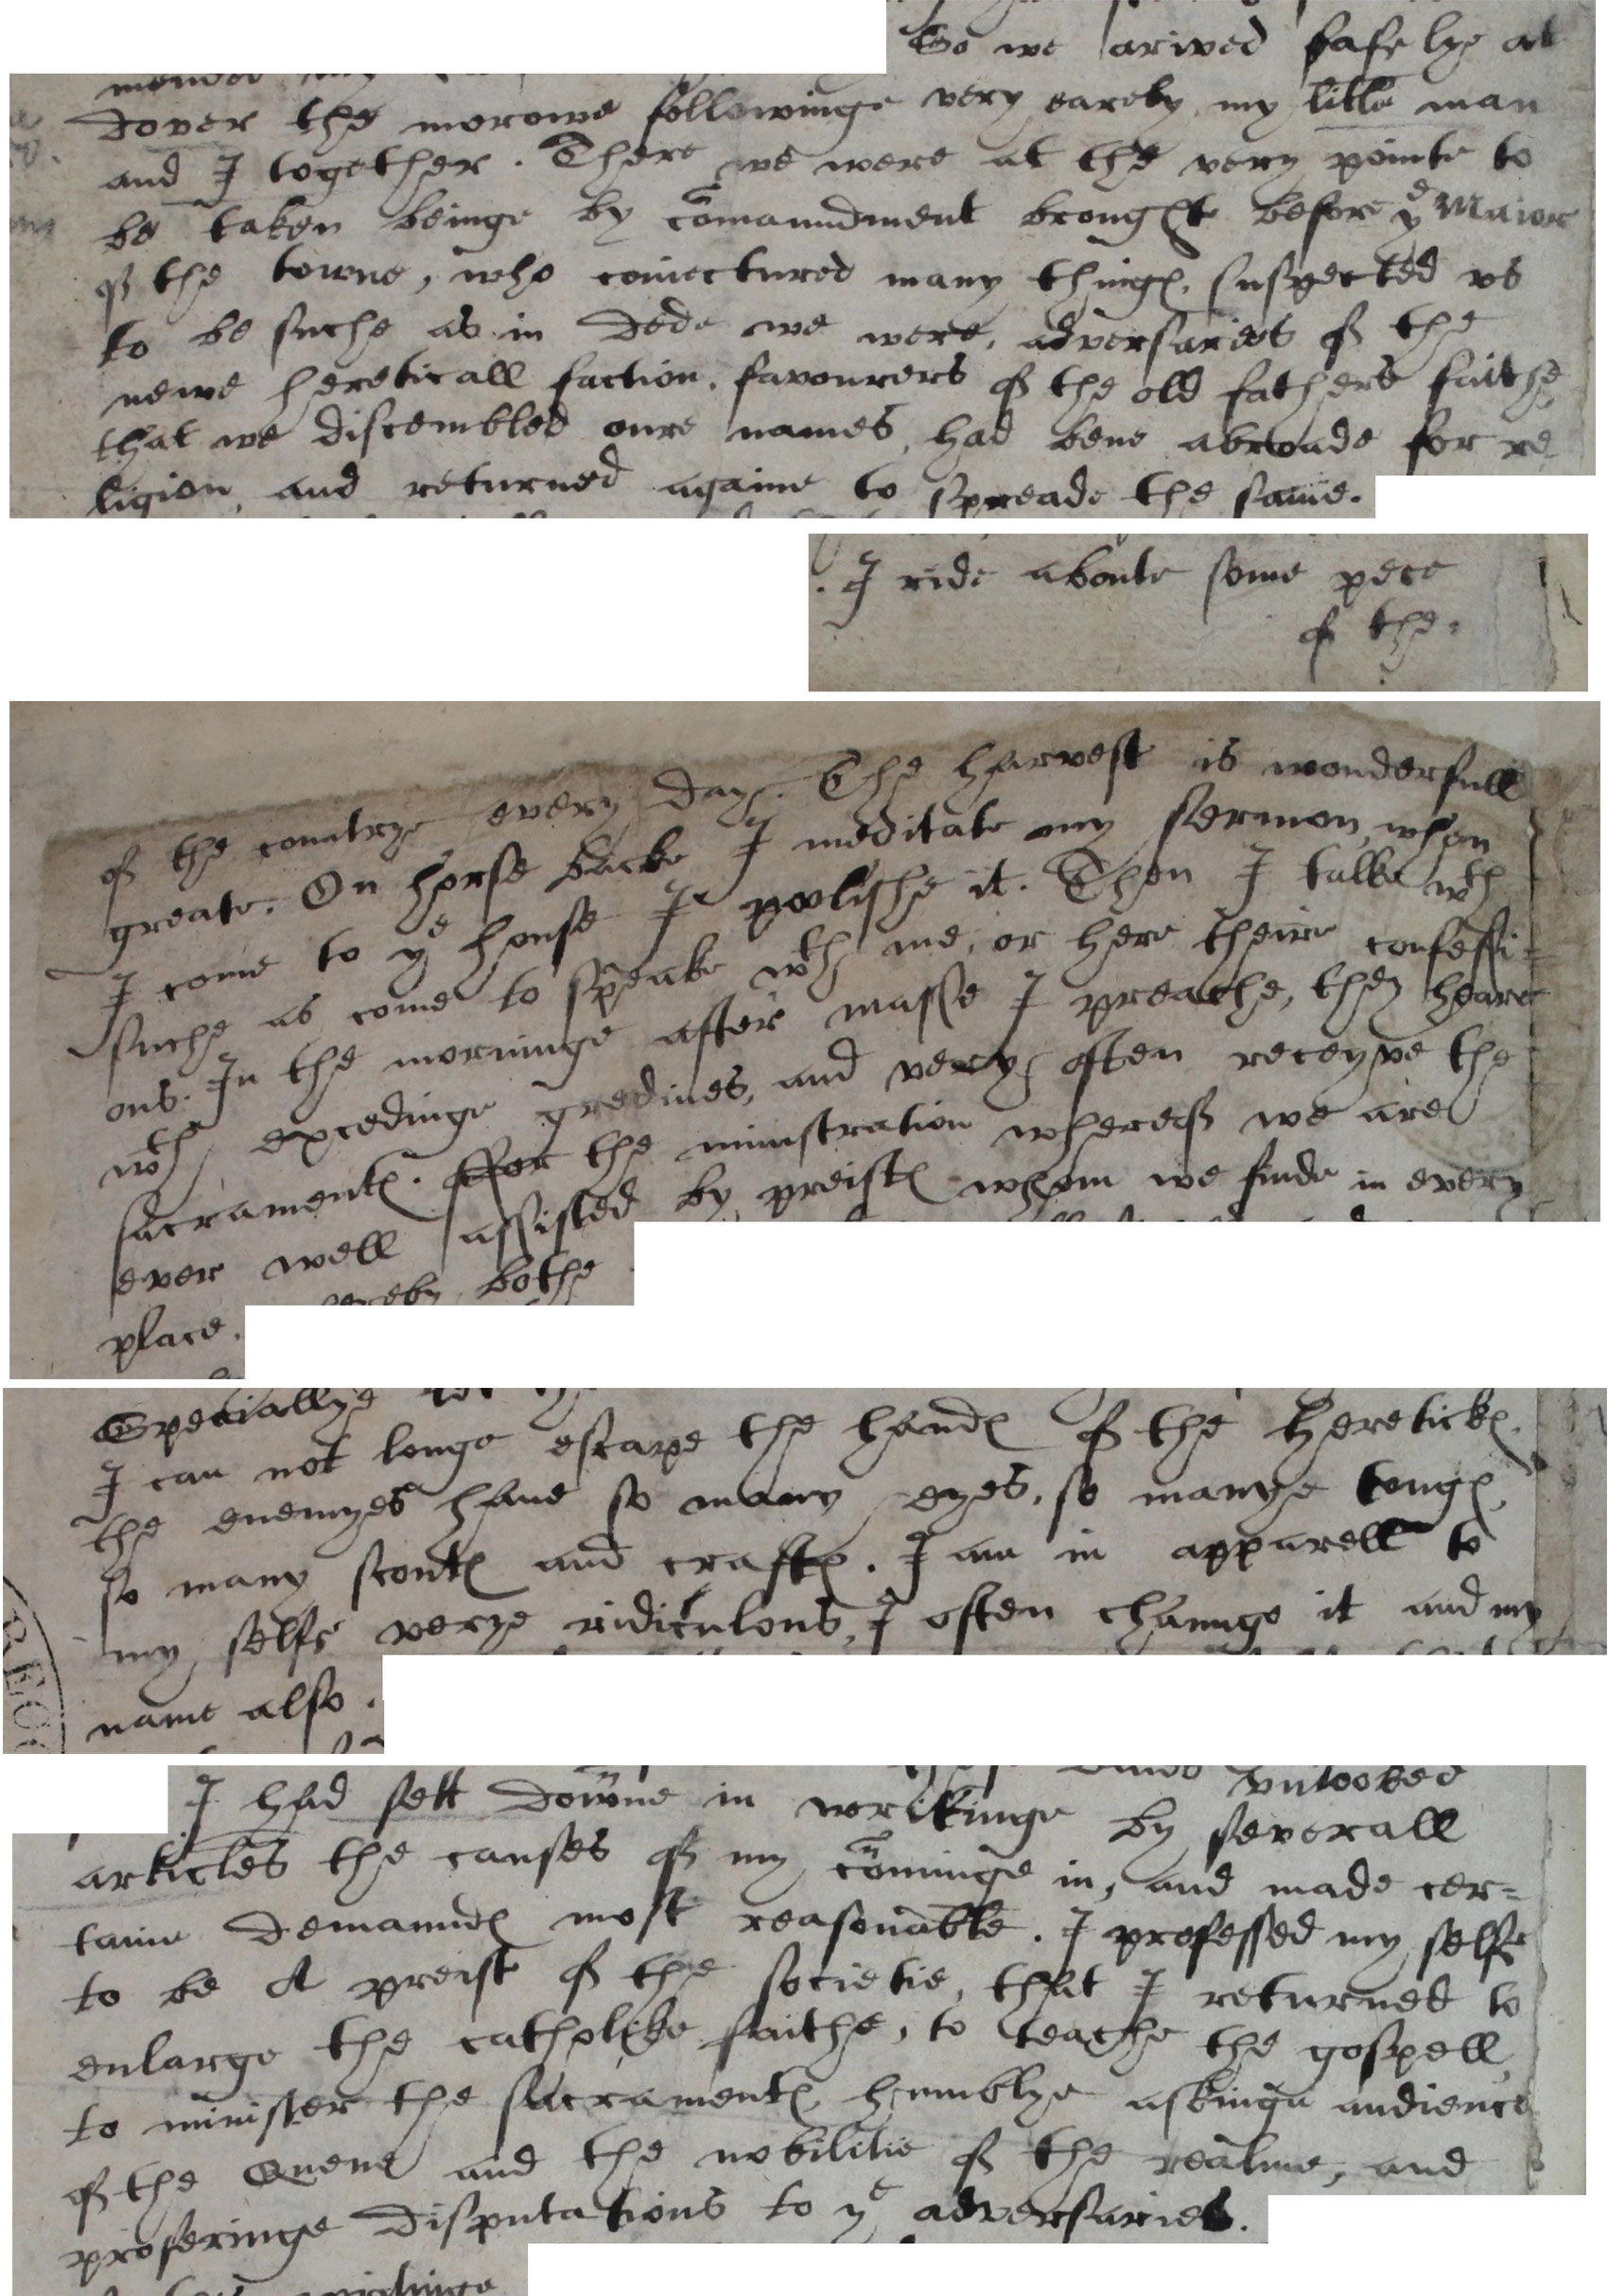 So we arived safelye at
Dover the morowe followinge very earely my little man
and I together. There we were at the very pointe to
be taken beinge by com̄aundment brought before yͤ Maior
of the towne, who coniectured many things, suspected vs
to be suche as in dede we were, adversaries of the
newe hereticall faction, favourers of the old fathers faithe,
that we discembled oure names, had bene abroade for re
ligion, and returned againe to spreade the same.
I ride aboute some pece
of the
of the countrye every day. The harvest is wonderfull
greate. On horse backe I meditate my sermon, when
I come to yͤ house I poolishe it. Then I talke wth
suche as come to speake wth me, or here theire confessi=
ons. In the morninge after masse I preache, they heare
wth excedinge gredines, and very often receyve the
sacraments. ffor the ministration whereof we are
ever well assisted by preists whom we finde in every
place. bothe
Speciallye
I can not longe escape the hands of the hereticks.
the enemyes have so many eyes, so manye tongs,
so many scouts and crafts. I am in apparell to
my selfe verye ridiculous, I often chaunge it and my
name also.
vnlooked
I had sett downe in writinge by severall
articles the causes of my com̄inge in, and made cer=
taine demaunds most reasonable. I professed my selfe
to be A preist of the societie, that I returned to
enlarge the catholike faithe, to teache the gospell,
to minister the sacraments, humblye askinge audience
of the Quene and the nobilitie of the realme, and
proferinge disputations to yͤ adversaries.